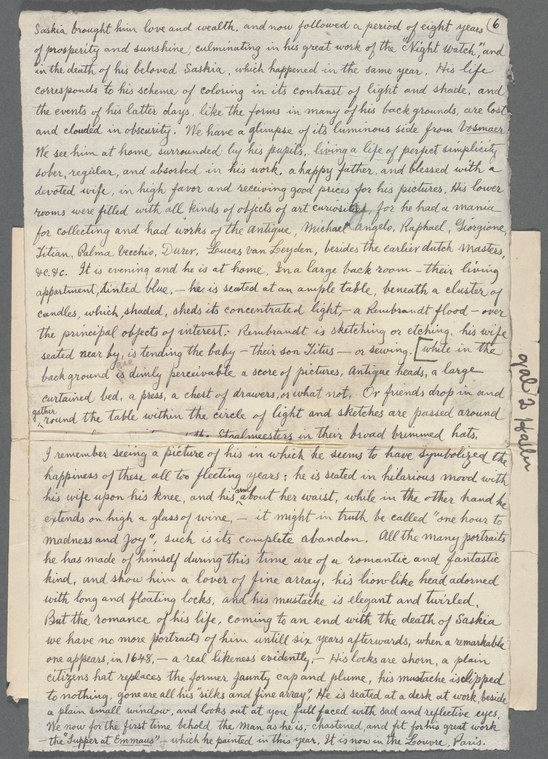 Saskia brought him love and wealth, and now followed a period of eight years (6
of prosperity and sunshine, culminating in his great work of the "Night Watch," and
in the death of his beloved Saskia, which happened in the same year. His life
corresponds to his scheme of coloring in its contrast of light and shade, and
the events of his latter days, like the forms in many of his backgrounds, are lost
and clouded in obscurity. We have a glimpse of its luminous side from Vosmaer
We see him at home surrounded by his pupils, living a life of perfect simplicity
sober, regular, and absorbed in his work, a happy father, and blessed with a
devoted wife, in high favor and receiving good prices for his pictures. His lower
rooms were filled with all kinds of objects of art curiosities, for he had a mania
for collecting and had works of the Antique, Michael Angelo, Raphael, Giorgione,
Titian, Palma Vecchio, Durer, Lucas van Leyden, besides the earlier dutch Masters,
&c.&c. It is evening and he is at home. In a large back room – their living
appartment, tinted blue, – he is seated at an ample table, beneath a cluster of
candles, which, shaded, sheds its concentrated light, – a Rembrandt flood – over
the principal objects of interest: Rembrandt is sketching or etching, his wife
seated near by, is tending the baby – their son Titus – or sewing. [while in the
background is dimly perceivable a score of pictures, Antique heads, a large
curtained bed, a press, a chest of drawers, or what not. Or friends drop in and
gather round the table within the circle of light and sketches are passed around
the Staalmeesters in their broad brimmed hats.
I remember seeing a picture of his in which he seems to have symbolized the
happiness of these all to fleeting years: he is seated in hilarious mood with
his wife upon his knee, and his arm about her waist, while in the other hand he
extends on high a glass of wine, – it might in truth be called "one hour to
madness and Joy", such is its complete abandon. All the many portraits
he has made of himself during this time are of a romantic and fantastic
kind, and show him a lover of fine array, his lion-like head adorned
with long and floating locks, and his mustache is elegant and twirled.
But the romance of his life, coming to an end with the death of Saskia
we have no more portraits of him untill six years afterwards, when a remarkable
one appears, in 1648, – a real likeness evidently, – His locks are shorn, a plain
citizens hat replaces the former jaunty cap and plume, his mustache is clipped
to nothing, gone are all his "silks and fine array". He is seated at a desk at work, beside
a plain small window, and looks out at you full faced with sad and reflective eyes.
We now for the first time behold the Man as he is, chastened, and fit for his great work
– the "Supper at Emmaus" – which he painted in this year. It is now in the Louvre, Paris.
gal 2